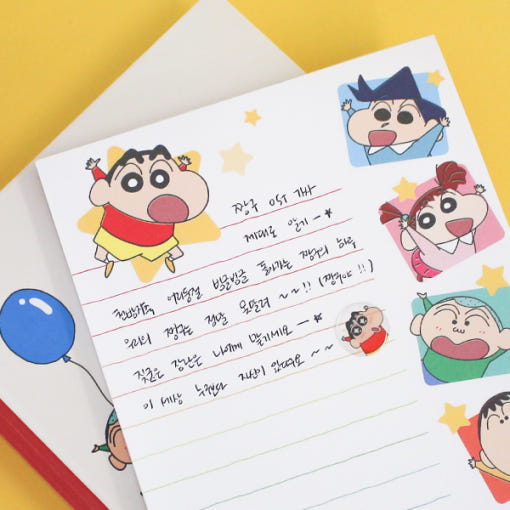 짱구 OST 가사
제대로 알기 ~★
천방지축 어리둥절 빙글빙글 돌아가는 짱구의 하루
우리의 짱구는 정말 못말려 ~~!! (짱구야 !!)
짖궂은 장난은 나에게 맡기세요 ~★
이 세상 누구보다 자신이 있어요 ~~